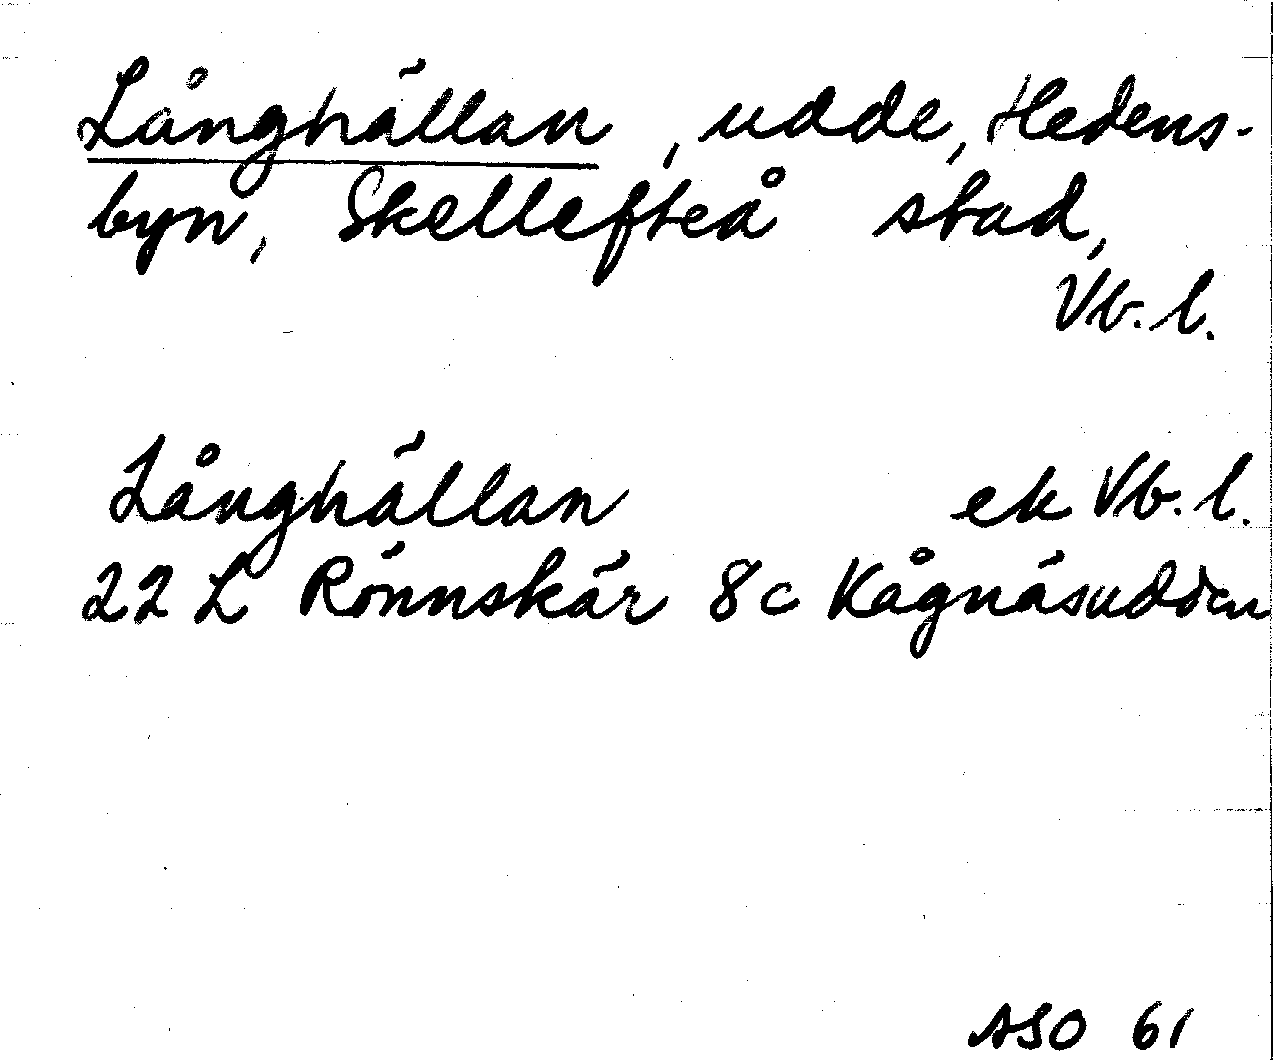 Långhällan, udde, Hedens-
byn, Skellefteå stad,
Vb. l.
Långhällan ek Vb. l.
22 L Rönnskär 8c Kågnäsudden
ASO 61